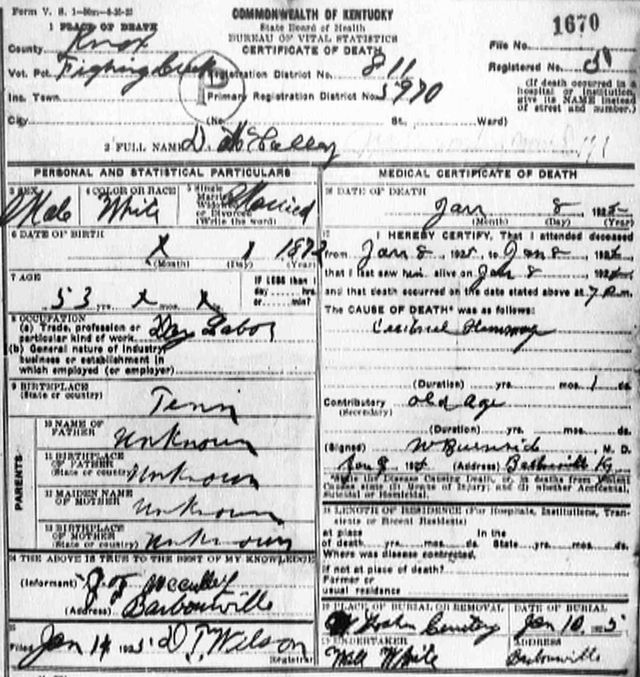 Form V. S. 1-50m-4-26-23
COMMONWEALTH OF KENTUCKY
State Board of Health
BUREAU OF VITAL STATISTICS
CERTIFICATE OF DEATH
1670
1 PLACE OF DEATH
County Knox
File No.
Registered No. 51
Vot. Pct. Fighting Creek Registration District No. 811
(If death occurred in a hospital or institution, give its NAME instead of street and number.)
Inc. Town
P
Primary Registration District No. 5970
City (No. St., Ward)
2 FULL NAME D. McCulley
PERSONAL AND STATISTICAL PARTICULARS
3 SEX Male
4 COLOR OR RACE White
5 Single Married Widowed or Divorced (Write the word) Married
6 DATE OF BIRTH
x 1 1872
(Month) (Day) (Year)
7 AGE
53 yrs. x mos. x
IF LESS than 1 day hrs. or min?
8 OCCUPATION
(a) Trade, profession or particular kind of work Day Labor
(b) General nature of industry business or establishment in which employed (or employer)
9 BIRTHPLACE
(State or country) Tenn
PARENTS
10 NAME OF FATHER Unknown
11 BIRTHPLACE OF FATHER (State or country) Unknown
12 MAIDEN NAME OF MOTHER Unknown
13 BIRTHPLACE OF MOTHER (State or country) Unknown
14 THE ABOVE IS TRUE TO THE BEST OF MY KNOWLEDGE
(Informant) J. T. McCulley
(Address) Barbourville
15
Filed Jan 14 1925 D T Wilson
Registrar
MEDICAL CERTIFICATE OF DEATH
16 DATE OF DEATH
Jan 8 1925
(Month) (Day) (Year)
17 I HEREBY CERTIFY, That I attended deceased
from Jan 8, 1925, to Jan 8 1925
that I last saw him alive on Jan 8 1925
and that death occurred on the date stated above at 7 p.m.
The CAUSE OF DEATH* was as follows:
(Duration) yrs. mos. 1 ds.
Contributory old age
(Secondary)
(Duration) yrs. mos. ds.
(Signed) W Burnside, M. D.
(Address) Barbourville Ky
*State the Disease Causing Death, or, in deaths from Violent Causes state (1) Means of Injury; and (2) whether Accidental, Suicidal or Homicidal.
18 LENGTH OF RESIDENCE (For Hospitals, Institutions, Transients or Recent Residents)
At place of death yrs. mos. ds. In the State yrs. mos. ds.
Where was disease contracted,
if not at place of death?
Former or
usual residence
19 PLACE OF BURIAL OR REMOVAL
Goshen Cemetery
DATE OF BURIAL
Jan 10 1925
20 UNDERTAKER
Will White
ADDRESS
Barbourville